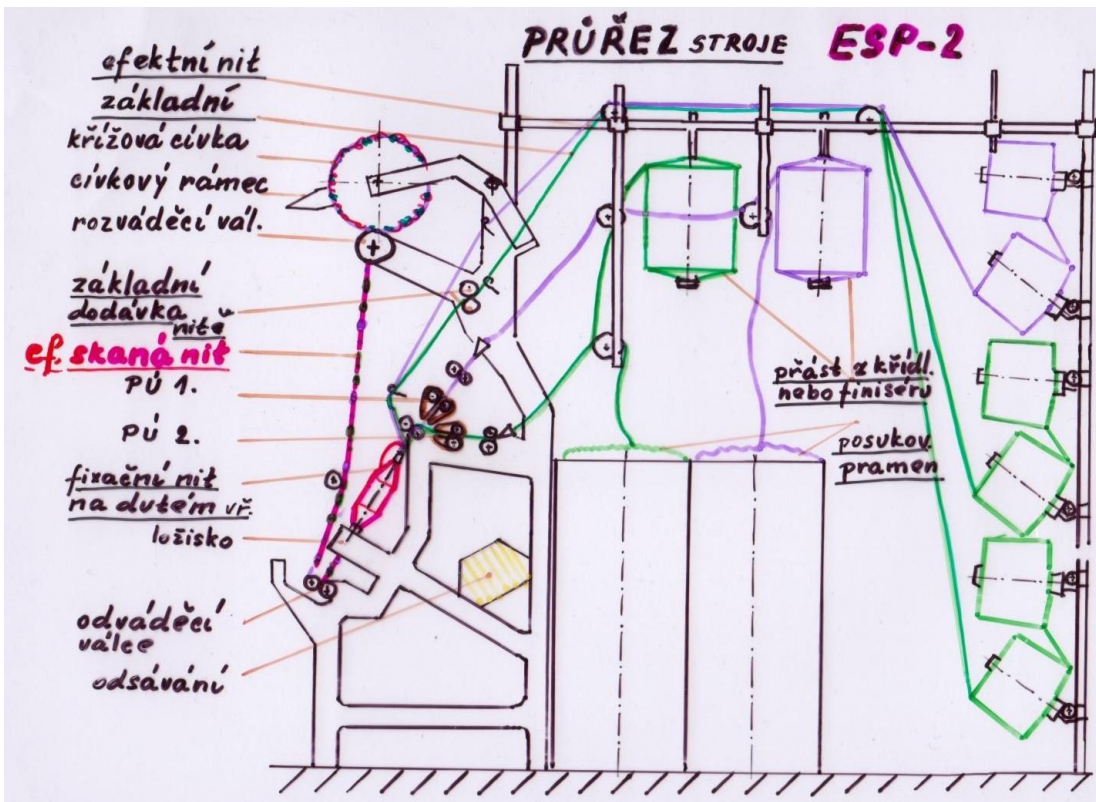 PRŮŘEZ STROJE ESP-2
efektní nit
základní
křížová cívka
cívkový rámec
rozváděcí vál.
základní
dodávka
nitě
ef. skaná nit
PÚ 1.
PÚ 2.
fixační nit
na dutém vř.
ložisko
odváděcí
válce
odsávání
přást z křídl.
nebo finiséru
posukov.
pramen